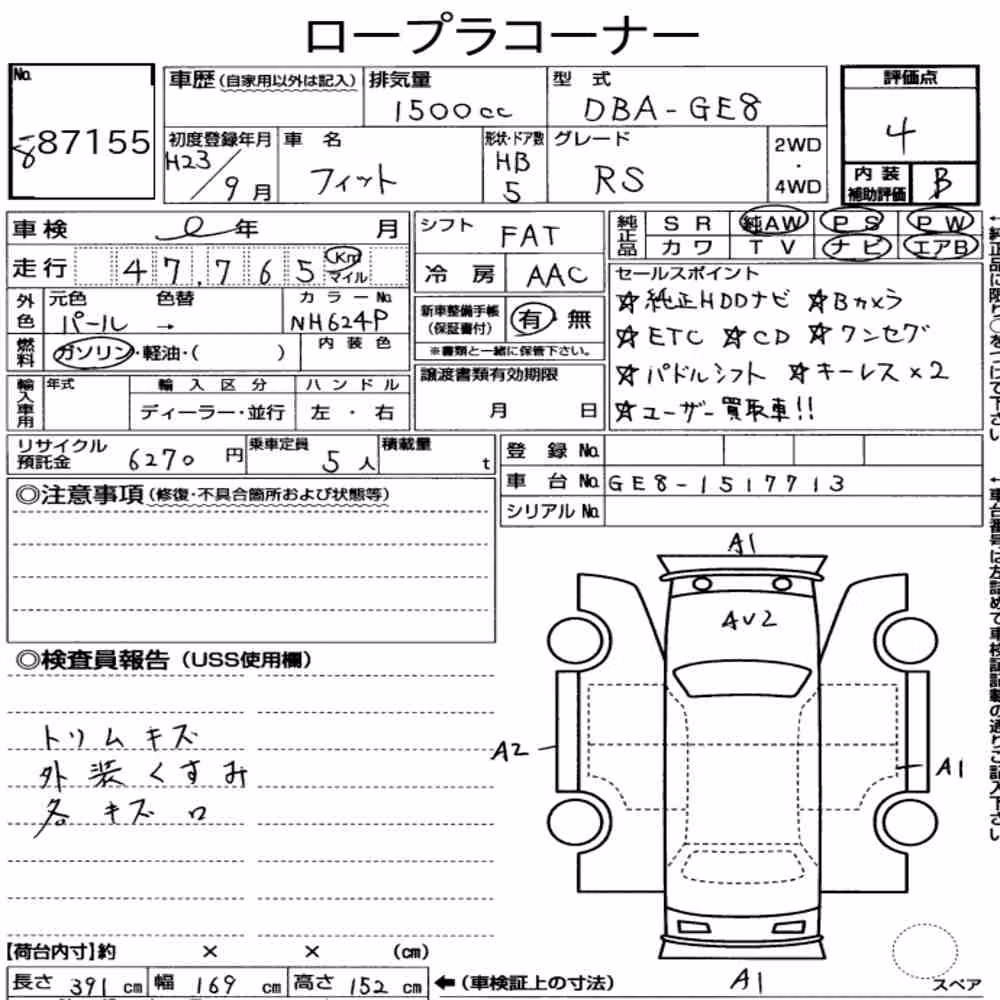 ロープラコーナー
No.
887155
車歴(自家用以外は記入) 排気量 型式 評価点
1500cc DBA-GE8 4
初度登録年月 車名 形状・ドア数 グレード 2WD・4WD
H23/9月 フィット HB 5 RS
内装補助評価 B
車検 年 月
走行 47,765 Km マイル
外色 元色 色替 カラーNo.
パール → NH624P
燃料 ガソリン・軽油・( ) 内装色
輸入車用 年式 輸入区分 ハンドル
ディーラー・並行 左・右
シフト FAT
冷房 AAC
新車整備手帳(保証書付) 有・無
※書類と一緒に保管下さい。
譲渡書類有効期限
月 日
純正品 SR 純AW PS PW
カワ TV ナビ エアB
セールスポイント
☆純正HDDナビ ☆Bカメラ
☆ETC ☆CD ☆ワンセグ
☆パドルシフト ☆キーレス×2
☆ユーザー買取車!!
←純正品に限り○をつけて下さい
リサイクル預託金 6270円 乗車定員 5人 積載量 t
登録No.
車台No. GE8-1517713
シリアルNo.
←車台番号は左詰めで車検証記載の通りご記入下さい
◎注意事項(修復・不具合箇所および状態等)
◎検査員報告(USS使用欄)
トリムキズ
外装くすみ
各キズロ
A1
AV2
A2
A1
A1
【荷台内寸】約 × × (cm)
長さ 391 cm 幅 169 cm 高さ 152 cm ←(車検証上の寸法)
スペア